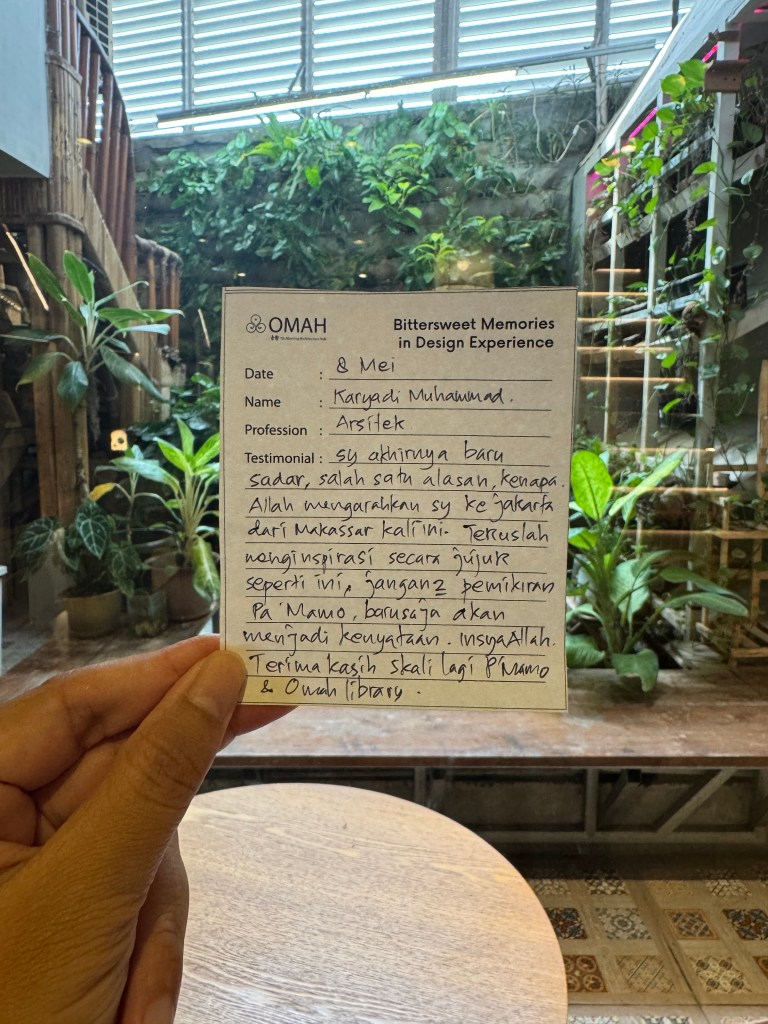 OMAH
Bittersweet Memories
in Design Experience
Date : 8 Mei
Name : Karyadi Muhammad.
Profession : Arsitek
Testimonial : sy akhirnya baru
sadar, salah satu alasan, kenapa.
Allah mengarahkan sy ke jakarta
dari Makassar kali ini. Teruslah
menginspirasi secara jujur
seperti ini, jangan2 pemikiran
Pa' Mamo, barusaja akan
menjadi kenyataan. insyaAllah.
Terima kasih skali lagi P'Mamo
& Omah library.